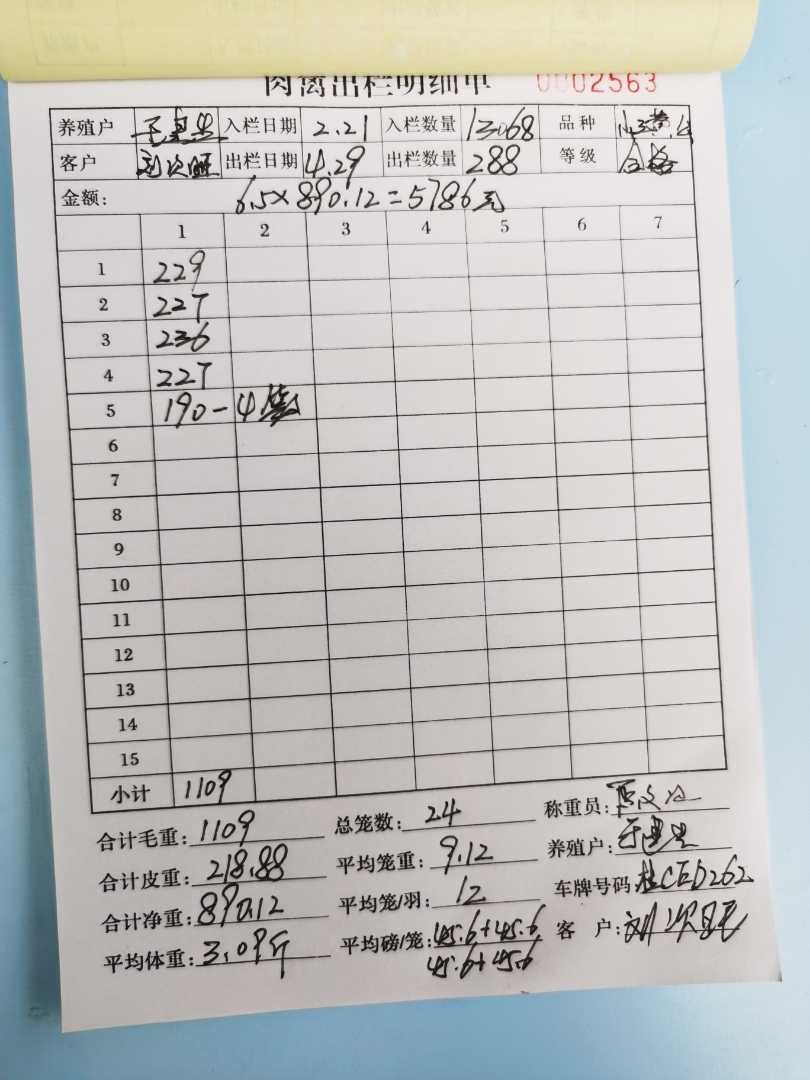 肉禽出栏明细单 0002563
养殖户 入栏日期 2.21 入栏数量 13068 品种
客户 刘次旺 出栏日期 4.29 出栏数量 288 等级 合格
金额: 6.5×890.12=5786元
1 2 3 4 5 6 7
1 229
2 227
3 236
4 227
5 190-4笼
6
7
8
9
10
11
12
13
14
15
小计 1109
合计毛重: 1109 总笼数: 24 称重员:
合计皮重: 218.88 平均笼重: 9.12 养殖户:
合计净重: 890.12 平均笼/羽: 12 车牌号码 桂CED262
平均体重: 3.09斤 平均磅/笼: 45.6+45.6 客 户: 刘次旺
45.6+45.6